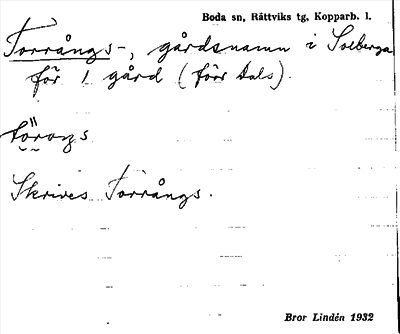 Boda sn, Rättviks tg, Kopparb. l.
Torrångs-, gårdsnamn i Solberga
för 1 gård (förr Dals).
Skrives Torrångs.
Bror Lindén 1932